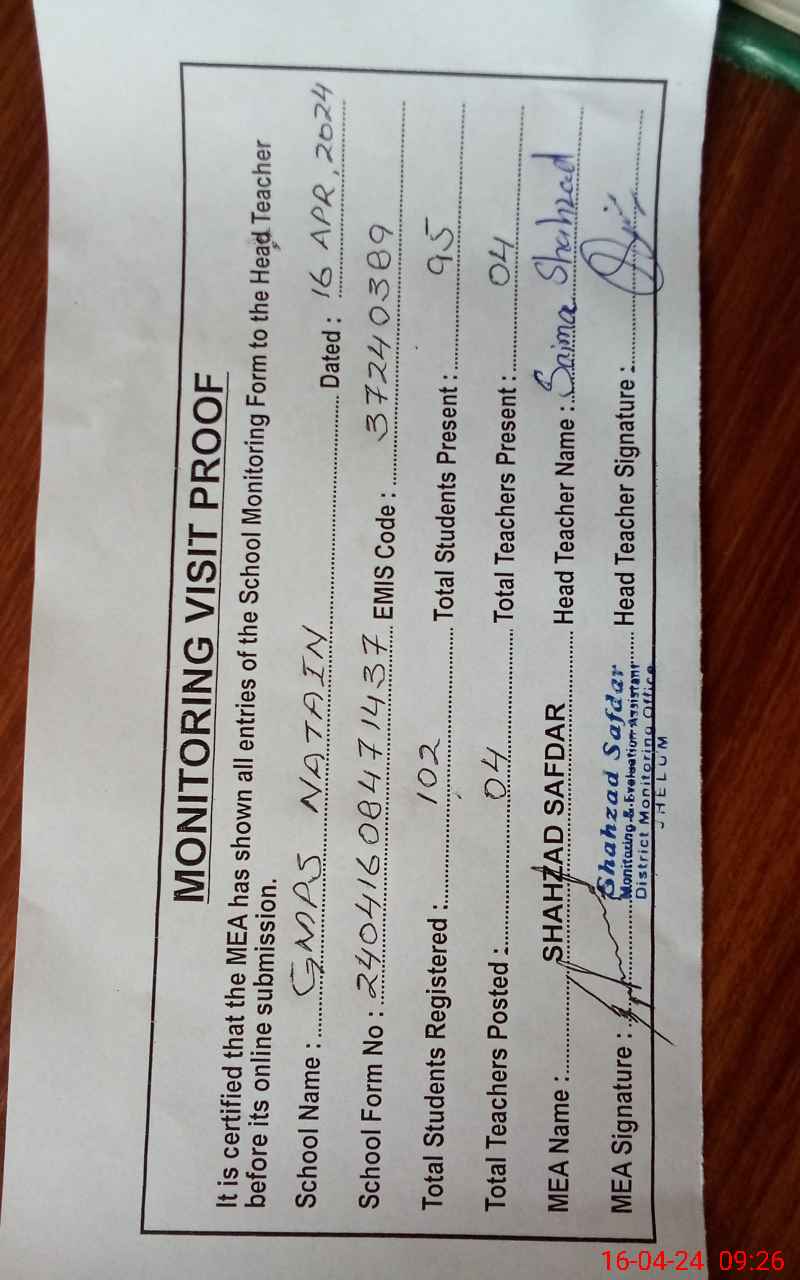 MONITORING VISIT PROOF
It is certified that the MEA has shown all entries of the School Monitoring Form to the Head Teacher
before its online submission.
School Name : GMPS NATAIN Dated : 16 APR, 2024
School Form No : 24041608471437 EMIS Code : 37240389
Total Students Registered : 102 Total Students Present : 95
Total Teachers Posted : 04 Total Teachers Present : 04
MEA Name : SHAHZAD SAFDAR Head Teacher Name : Saima Shahzad
MEA Signature : Head Teacher Signature :
Shahzad Safdar
Monitoring & Evaluation Assistant
District Monitoring Office
JHELUM
16-04-24 09:26